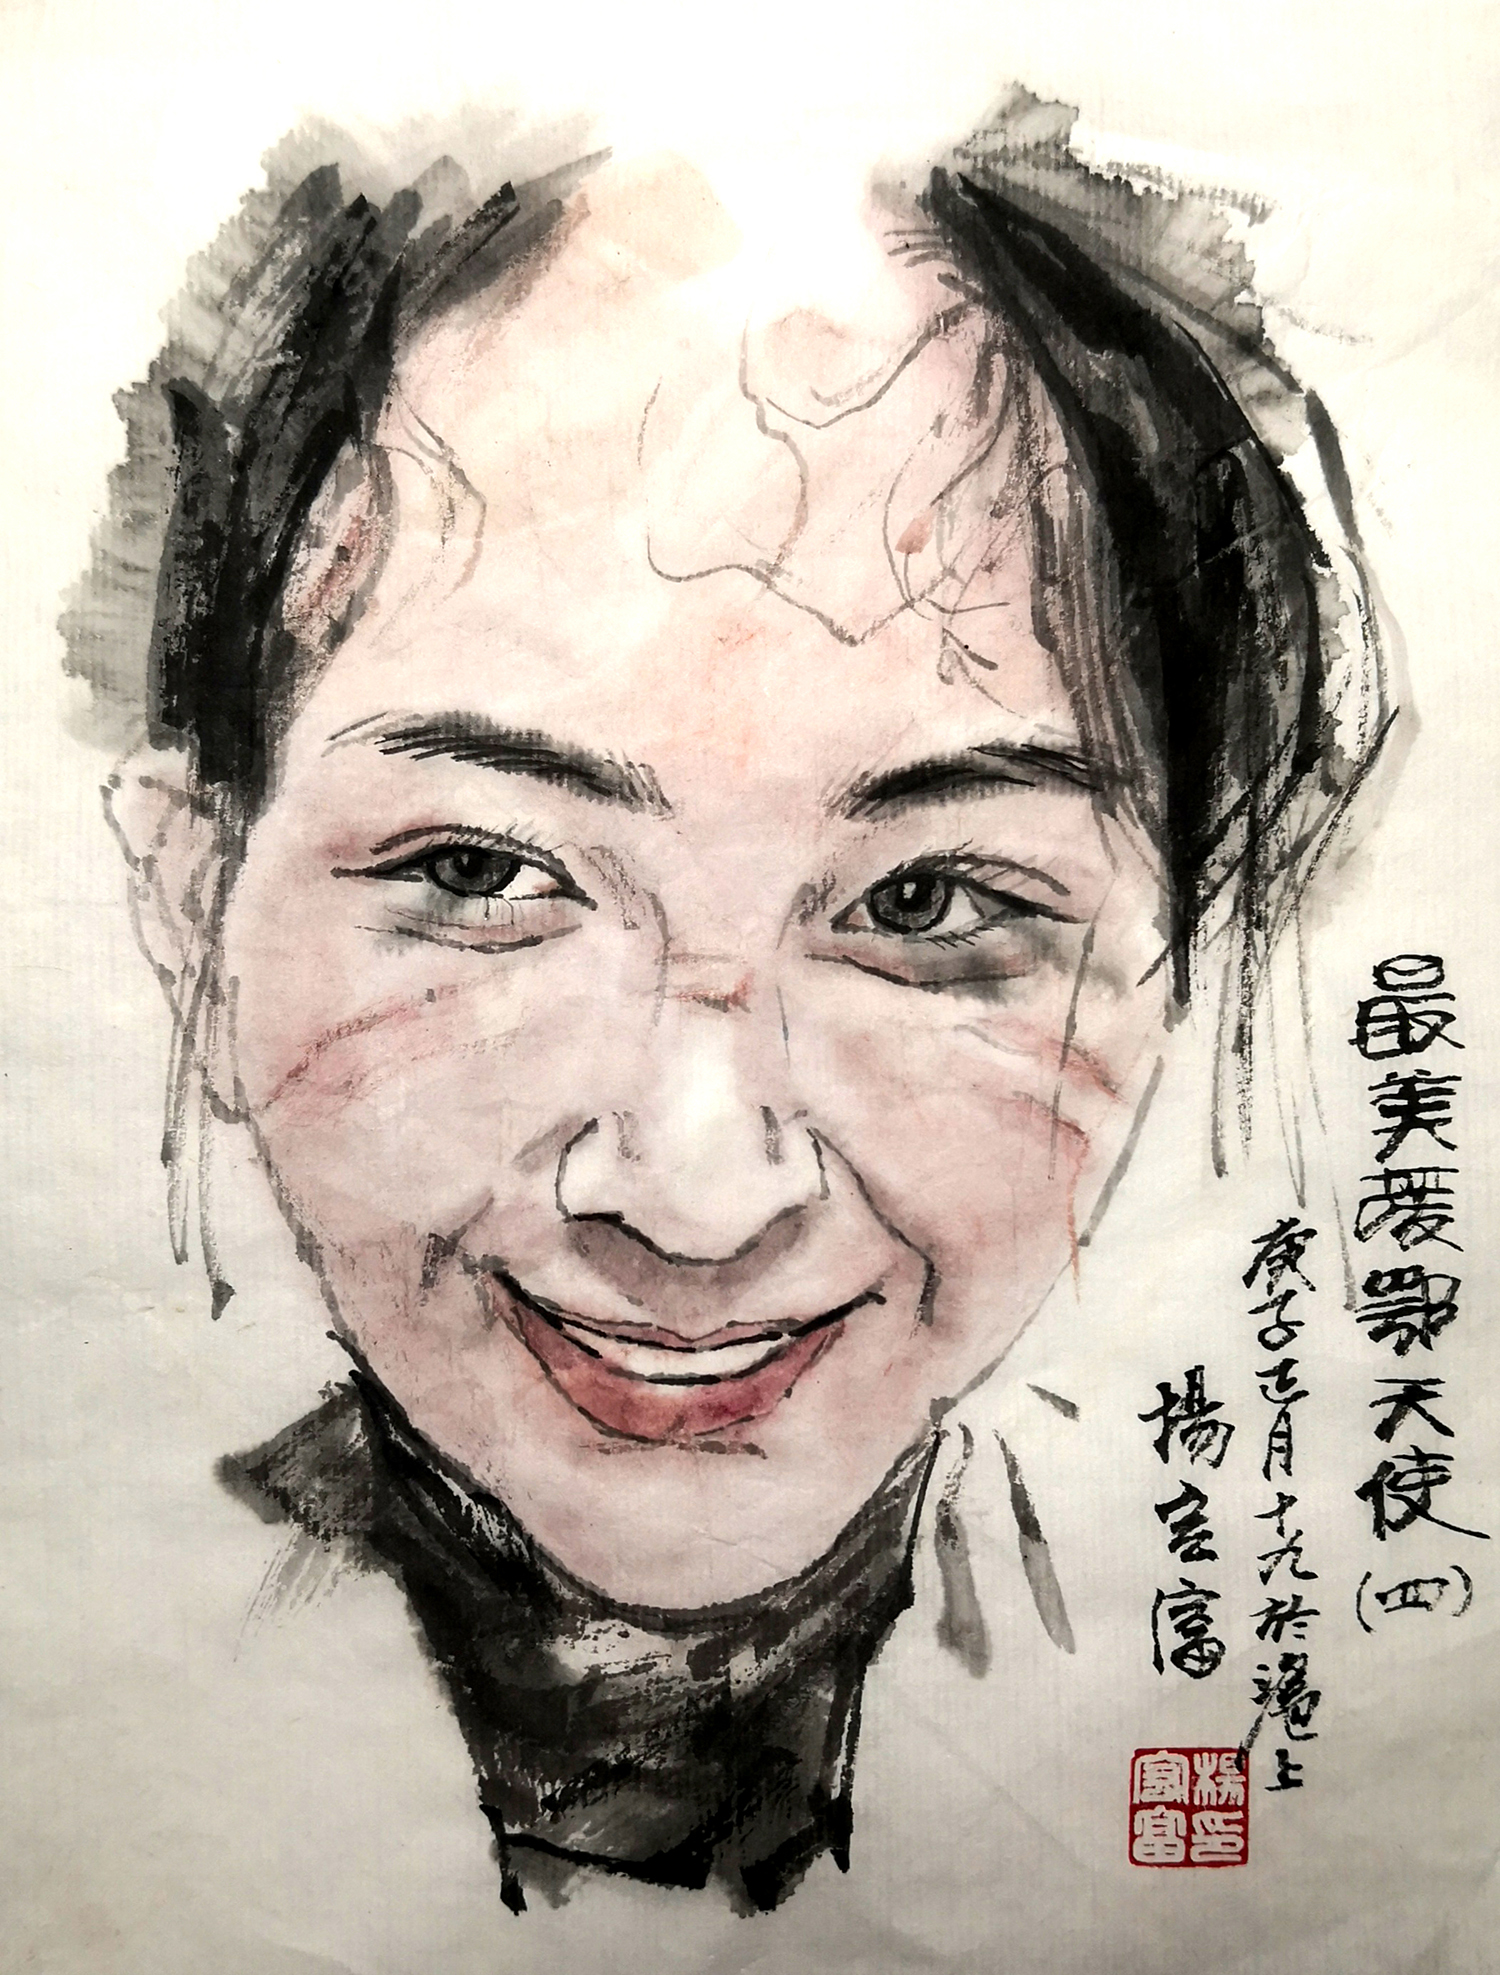 最美援鄂天使(四)
庚子正月十九於滬上
楊宏富
楊印
宏富